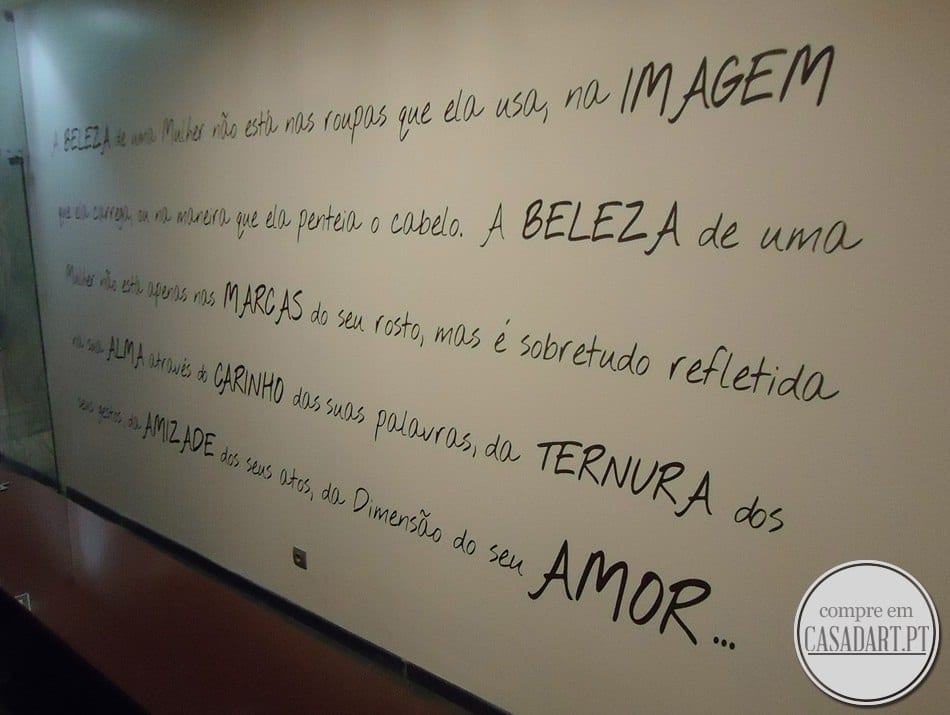 A BELEZA de uma Mulher não está nas roupas que ela usa, na IMAGEM
que ela carrega, ou na maneira que ela penteia o cabelo. A BELEZA de uma
Mulher não está apenas nas MARCAS do seu rosto, mas é sobretudo refletida
na sua ALMA através do CARINHO das suas palavras, da TERNURA dos
seus gestos, da AMIZADE dos seus atos, da Dimensão do seu AMOR...
compre em
CASADART.PT